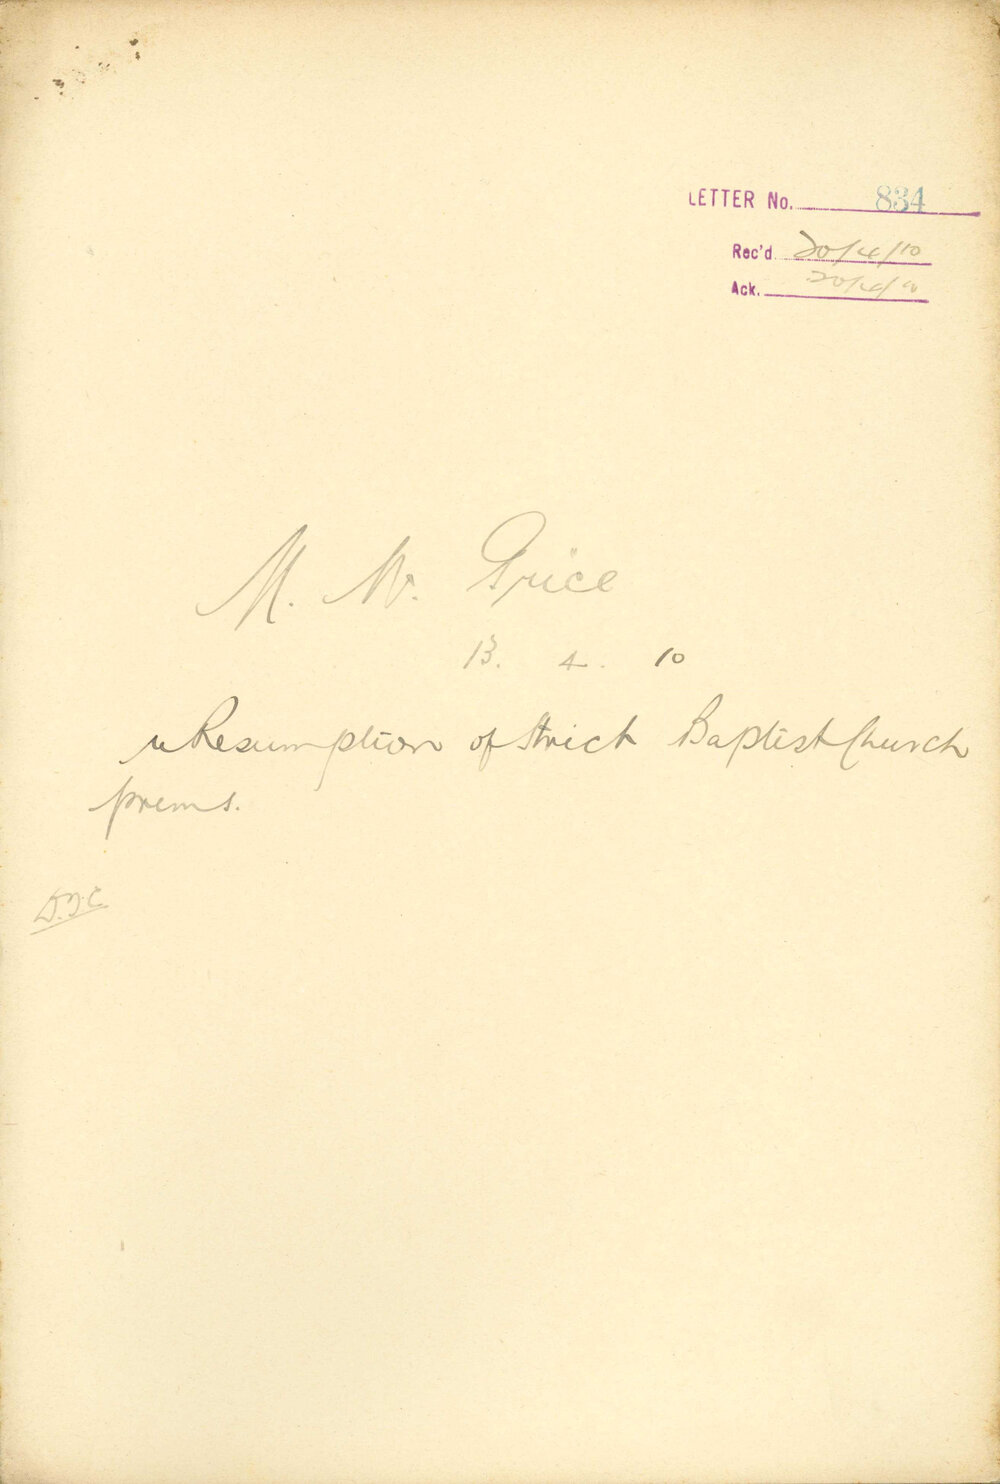 LETTER No. 834
Rec'd 20/4/10
Ack. 20/4/10
M. W. Grice
13. 4. 10
re Resumption of Strict Baptist Church
prems.